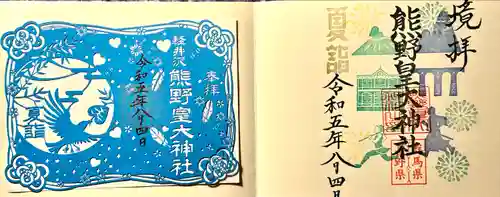 奉拝
軽井沢
熊野皇大神社
令和五年八月四日
夏詣
境拝
熊野皇大神社
夏詣
令和五年八月四日
馬県
野県